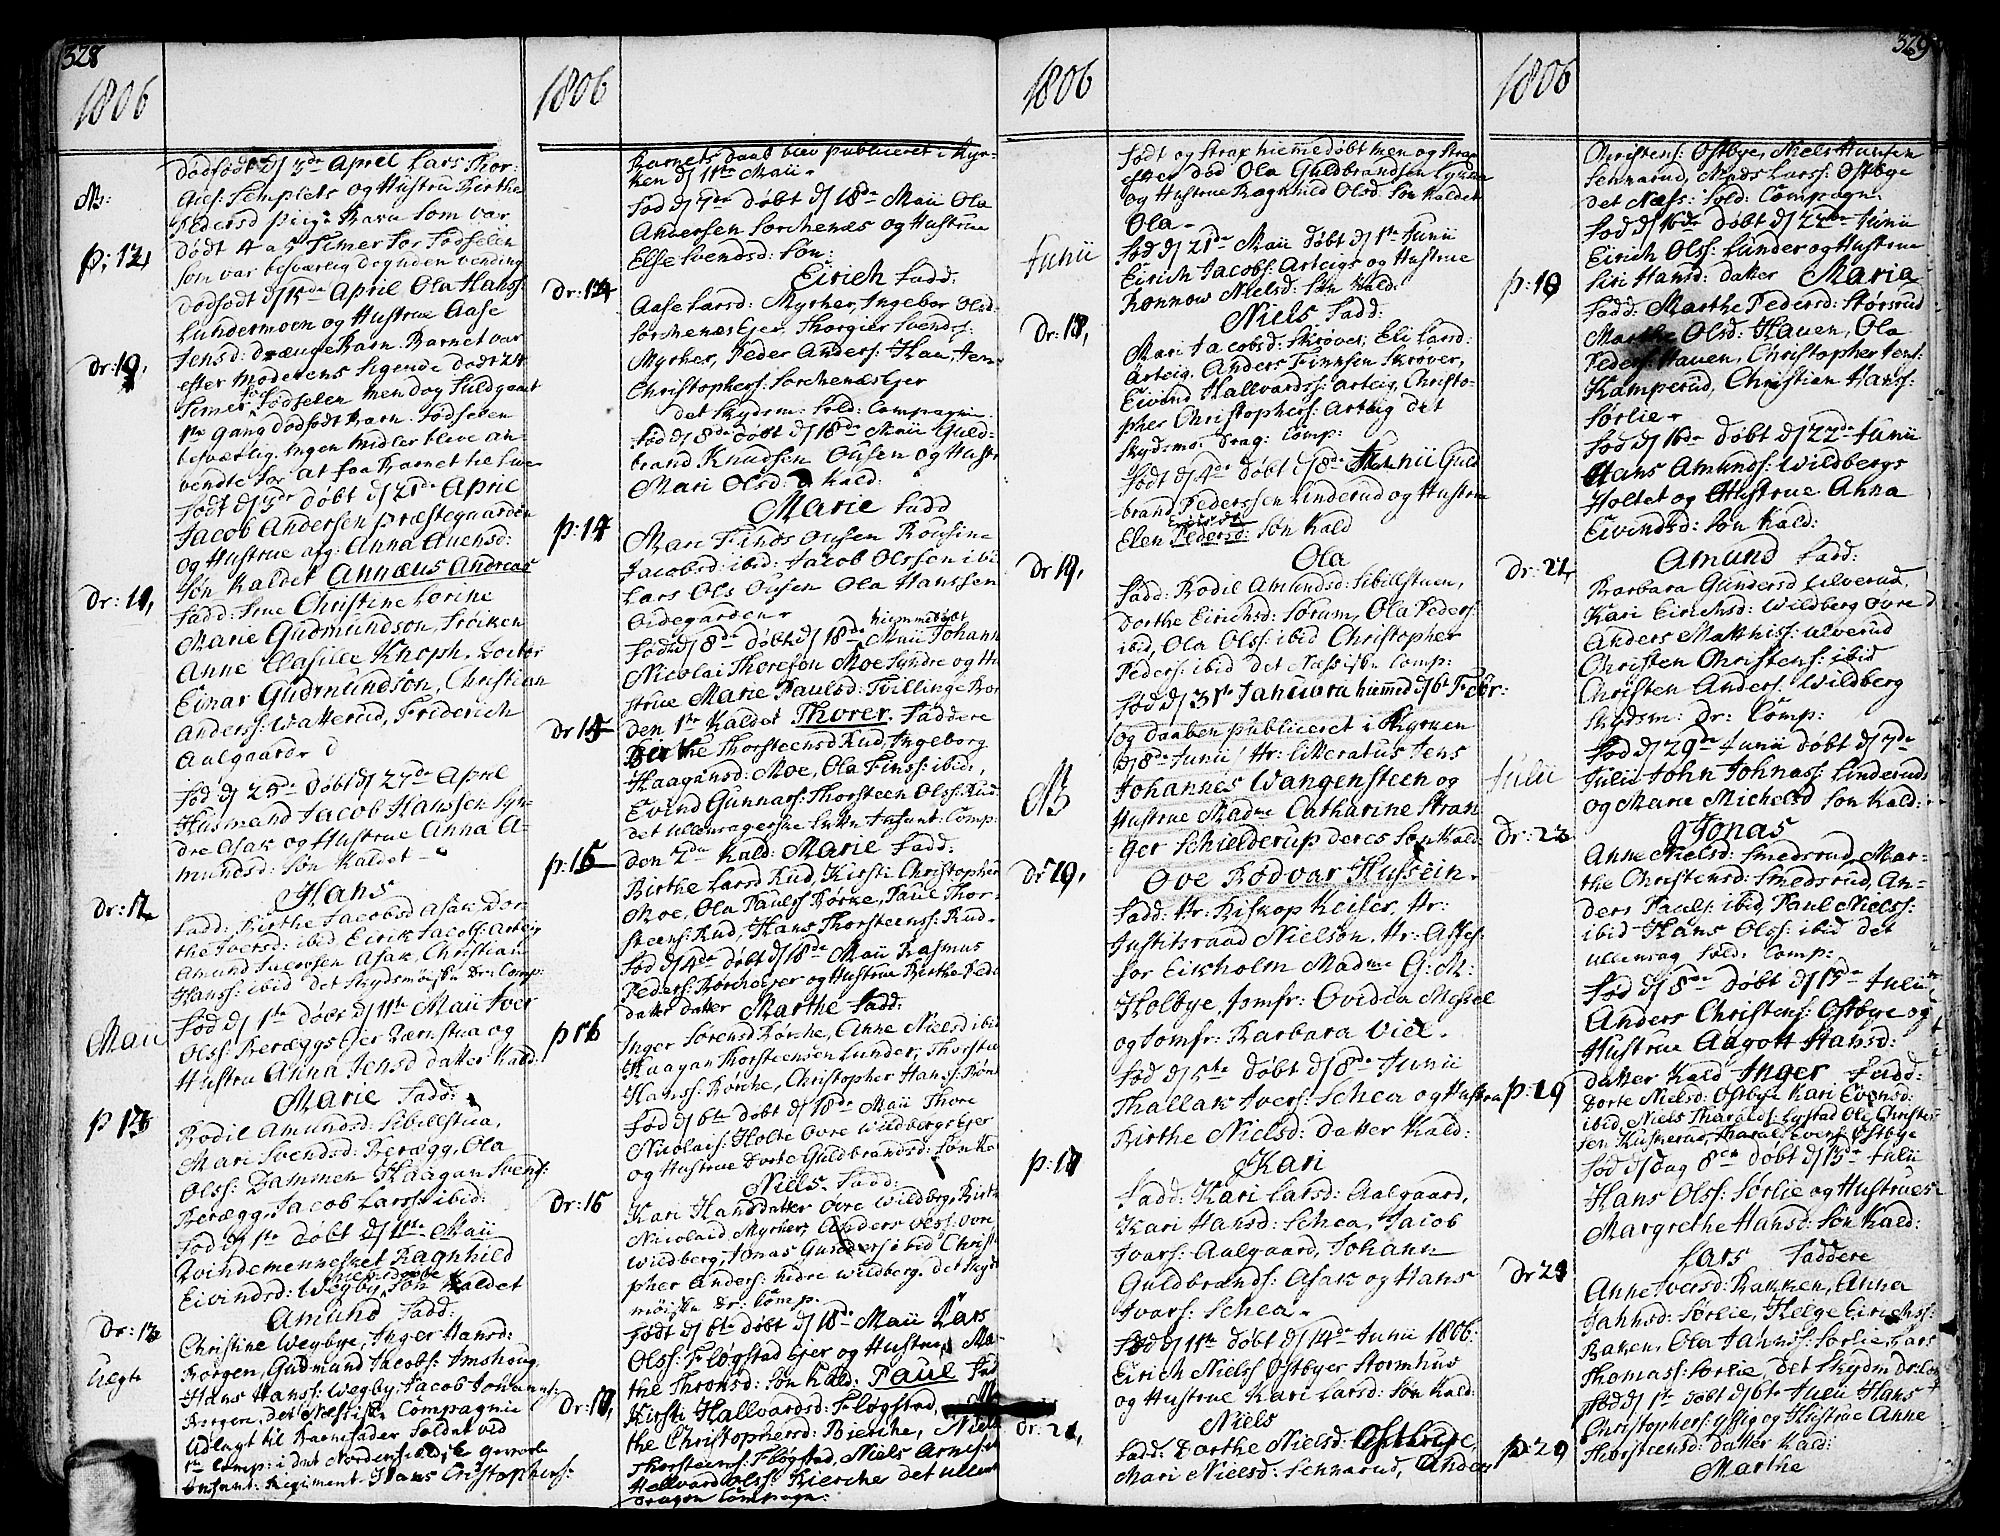 328
1806
M:
dødfødt d 3de April Lars Thor:
Aas: Templets og Hustru Birthe
Pedersd pige Barn som var
p: 12,
dødt 4 a 5 Timer før Fødselen
som var besværlig dog uden vending
dødfødt d 15de April Ola Hanss:
Lundermoen og Hustrue Aase
Jensd: drænge Barn. Barnet var
Dr: 10,
efter Moderens Sigende dødt 24
Timer før Fødselen men dog Fuldgaaet
1te Gang dødfødt Barn. Fødselen
besværlig. Ingen Midler bleve an
vendte for at faa Barnet til Live
født d 5te døbt d 21de April
Jacob Andersen Præstegaarden
og Hustrue afg: Anna Auensd:
Dr: 11,
Søn Kaldet Annæus Andreas
Fadd: Frue Christine Lorine
Marie Gudmundson, Frøiken
Anne Clasille Knoph, Doctor
Einar Gudmundson, Christian
Anderss: Watterud, Friderich
Aalgaard
Fød d 25de Døbt d 27de April
Husmand Jacob Hanssen Syn-
dre Asak og Hustrue Anna A-
mundsd: Søn Kaldet
Dr: 12
Hans
Fadd: Birthe Jacobsd Asak Dor-
the Iversd: ibid Eirik Jacobs: Arteig
Amund Jacobsen Asak, Christian
Hanss: ibid det Skydsmoiske Dr: Comp:
Maii
Fød d 1te døbt d 11te Maii Iver
Olss: Berægs Ejer Værnstua og
Hustru Anna Jensd datter Kald:
p 13
Marie Fadd:
Bodil Amundsd: Sibillstua,
Mari Svendsd: Beregg, Ola
Olss: Dammen Haagan Svens:
Beregg, Jacob Larss: ibid:
Fød d 1te døbt d 11te Maii
Qvindemennesket Ragnhild
Eivindsd: Wegby, Søn Kaldet
Dr: 13
Uægte
Amund Fadd:
Christine Wegbye, Inger Hansd:
Borgen, Gudmund Jacobs: Imshoug
Hans Hanss: Wegby, Jacob Johannes:
Borgen, det Næssiske Compagnie
Udlagt til Barnefader Soldat ved
1te Comp: i det Nordenfieldske geworbe
Infant: Regiment Hans Cristophers:
1806
Barnets daab blev publiceret i Kyr-
ken d 11te Maii
Fød d 7de døbt d 18de Maii Ola
Andersen Sorchenæs og Hustrue
Else Svendsd: Søn:
Dr: 14
Eirich Fadd:
Aase Larsd: Myrher, Ingebor Olsd
Sorchenæs Ejer, Thorgier Svends:
Myrher, Peder Anders: Hau, Jens
Christophers: Sorchenæs Ejer
det Skydsm: Sold: Compagnie.
Fød d 8de døbt d 18de Maii Guld-
brand Knudsen Ousen og Hustr
Mari Olsd: Kald:
p: 14
Marie Fadd
Mari Finds Ousen Rousine
Jacobsd: ibid: Jacob Olssen ibi
Lars Ols Ousen Ola Hanssen
Ødegaarden
hiemmedøbt
Fød d 8de døbt d 18de Maii Johann
Nicolai Thoresøn Moe Syndre og Hu
strue Marie Paulsd: Tvillinge Bør
Dr 15
den 1te Kaldet Thorer. Faddere
Birthe Thorsteensd Rud, Ingeborg
Haagansd: Moe, Ola Finss: ibid,
Evind Gunnars: Thorsteen Olss: Rud
det Ullensagerske Lette Infant: Comp:
p: 15
den 2den Kald: Marie Fadd:
Birthe Larsd Rud, Kirsti Christopher
Moe, Ola Paulss Børke, Paul Thor-
steens: Rud, Hans Thorsteens: Rud
Fød d 4de døbt d 18de Maii Rasmus
Peders: Borchejer og Hustrue Birthe Peder
p 16
datter Marthe Fadd:
Inger Sørensd Børche, Anne Nielsd ibid
Haagan Thorsteensen Lunder, Thorste
Hanss: Børche, Christopher Hanss: Bør
Fød d 6te døbt d 18de Maii Thore
Nicolais: Holte Ovre Wildbergs Ejer
og Hustrue Dorte Guldbrandsd: Søn Ka
Dr: 16
Niels. Fadd:
Kari Hansdatter Ovre Wildberg, Birthe
Nicolaid Myrher, Anders Olss: Ovre
Wildberg, Jonas Gunders: ibid Christ
pher Anders: Nedre Wildberg. det Skyds
moiske Dr: Comp.
Født d 6te døbt d 18de Maii Lars
Olss: Fløgstad Ejer og Hustrue Ma
the Thronsd: Søn Kald: Paul Fad
Dr: 17,
Kirsti Hallvardsd: Fløgstad,
the Christophersd: Bierche, Niels
Thorsteens: Fløgstad, Niels Arnes:
Hallvard Olss: Bierche det Ullens
Dragon Compagn:
1806
Født og Strax hiemmedøbt men og Strax
efter død Ola Guldbrandsen Lynne
og Hustrue Ragnhild Olsd: Søn Kaldet
Ola
Junii
Fød d 21de Maii døbt d 1te Junii
Eirich Jacobs: Arteigs og Hustrue
Rønnow Nielsd: Søn Kald:
Dr: 18,
Niels Fadd:
Mari Jacobsd: Skrøver, Eli Larsd:
Arteig, Anders Finnsen Skrøver,
Eivind Hallvardss: Arteig, Christo-
pher Christophers: Arteig det
Skydsmo: Drag: Comp:
Født d 4de døbt d 8de Junii Guld
brand Pederssen Linderud og Hustrue
Elen Pedersd: Søn Kald
Dr 19,
Ola
Fadd: Bodil Amundsd: Sibillstuen,
Dorthe Eirichsd: Sørum, Ola Peders:
ibid, Ola Olss: ibid Christopher
Peders: ibid det Næssiske Comp:
Fød d 31te Januara hiemmed d 6te Febr:
og daaben publiceret i Kyrken
d 8de Junii / Hr: Litteratus Jens
NB
Johannes Wangensteen og
Hustrue Madme Catharine Stran
ger Schielderup deres Søn Kald
Dr 19,
Ove Bodvar Hussein.
Fadd: Hr: Biskop Keiser, Hr:
Justitsraad Nielson, Hr: Asses
sor Eikholm Madme G: M:
Holbye, Jomfr: Ovidia Messel
og Jomfr: Barbara Viel.
Fød d 5te døbt d 8de Junii
Thallak Ivers: Schea og Hustru
Birthe Nielsd: datter Kald:
p: 17
Kari
Fadd: Kari Larsd: Aalgaard,
Kari Hansd: Schea, Jacob
Ivars: Aalgaard, Johann
Guldbrands: Asak og Hans
Ivars: Schea
Fød d 11te døbt d 14de Junii 1806:
Eirich Niels Østbyes Stormhus
og Hustrue Kari Larsd: Søn Kald:
Dr: 21,
Niels
Fadd: Dorthe Nielsd: Østbye,
Mari Nielsd: Sennerud, Anders
329
1806
Christens: Østbye, Niels Hansen
Sennerud, Mads Larss: Østbye
det Næss: Sold: Compagn:
Fød d 16de døbt d 22de Junii
Eirich Olss: Lunder og Hustrue
Siri Hansd: datter Maria
p: 18
Fadd: Marthe Pedersd: Størsrud
Marthe Olsd: Hauen, Ola
Peders: Hauen, Christopher Jens:
Kamperud, Christian Hans:
Sørlie
Fød d 16de døbt d 22de Junii
Hans Amunds: Wildbergs
Holtet og Hustrue Anna
Eivindsd: Søn Kald:
Dr: 21,
Amund Fadd:
Barbara Gundersd Ulverud,
Kari Eirichsd: Wildberg Øvre
Anders Matthiss: Ulverud
Christen Christens: ibid
Christen Anders: Wildberg
Skydsm: Dr: Comp:
Julii
Fød d 29de Junii døbt d 7de
Julii John Johnass: Linderud
og Marie Michelsd Søn Kald:
Dr: 22
Jonas
Anne Nielsd: Smedsrud, Mar-
the Christensd: Smedsrud, An-
ders Pauls: ibid, Paul Nielss:
ibid Hans Olss: ibid det
Ullensag Sold: Comp:
Fød d 8de døbt d 13de Julii
Anders Christens: Østbye og
Hustrue Aagott Hansd:
p: 19
datter Kald Inger Fadd:
Dorte Nielsd: Østbye Kari Evensd:
ibid, Niels Tharalds: Lystad Ole Christen
sen Kusnerud, Tharal Evers: Østbye
Fød d dag 8de døbt d 13de Julii
Hans Olss: Sørlie og Hustrues
Margrethe Hansd: Søn Kald:
Dr 23
Lars Faddere
Anne Iversd: Bakken, Anna
Jahnsd: Sørlie, Helge Eirichss:
Baken, Ola Jahnss: Sørlie, Lars
Thomass: Sørlie, det Skydsm Dr: Comp
Fød d 1te døbt d 6te Julii Hans
Christophers: og Hustrue Anne
p: 20
Thorsteensd: datter Kald:
Marthe